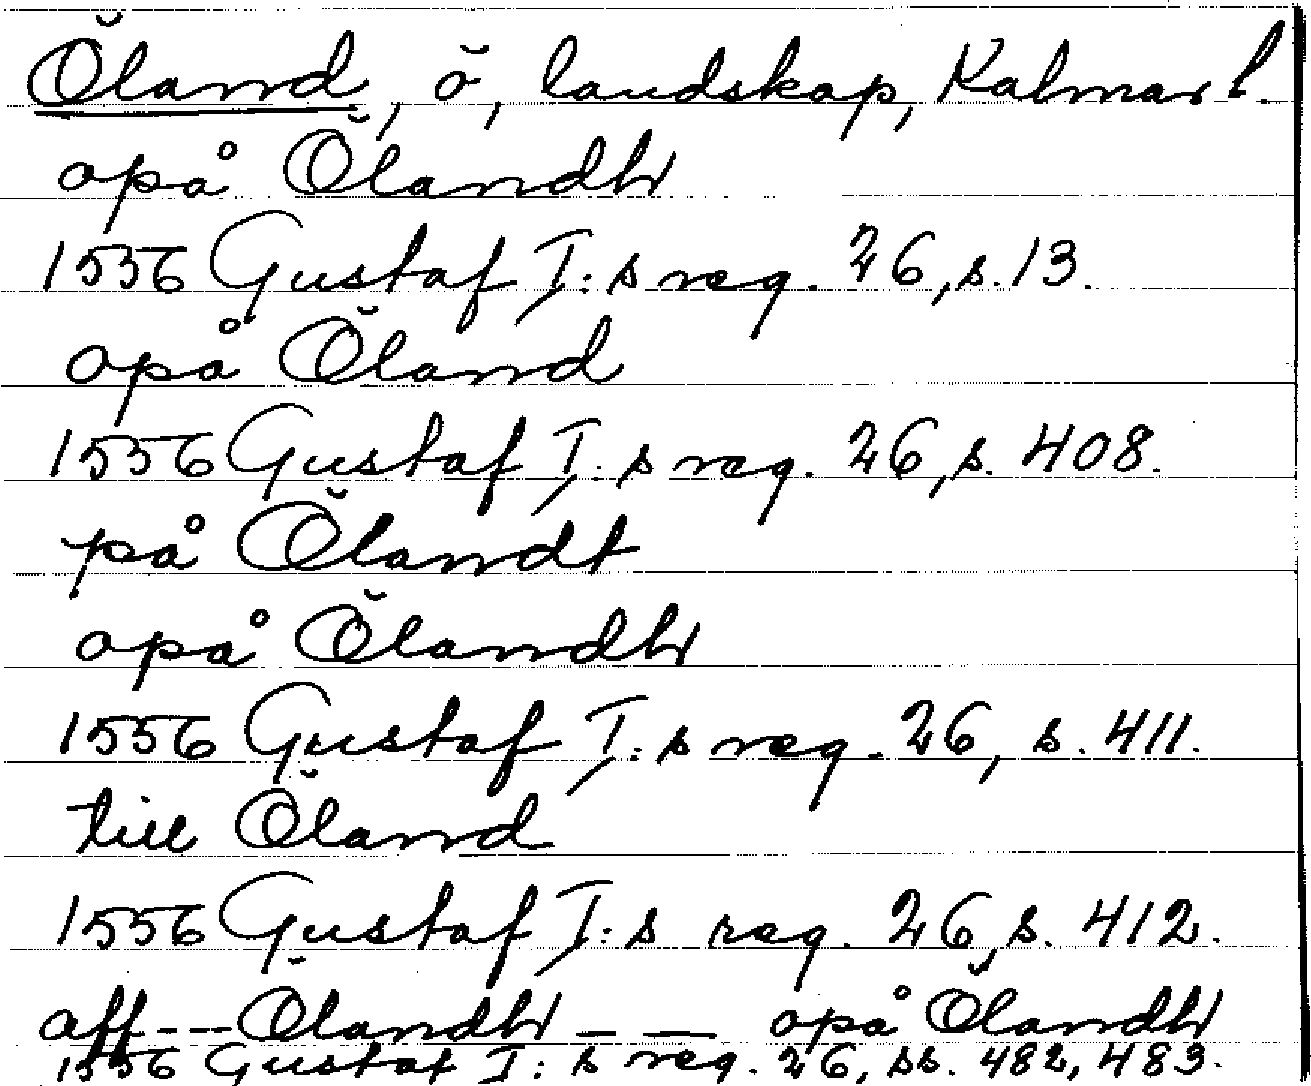 Öland, ö, landskap, Kalmar l.
opå Ölandh
1556 Gustaf I:s reg. 26, s. 13.
opå Öland
1556 Gustaf I:s reg. 26, s. 408.
på Ölandt
opå Ölandh
1556 Gustaf I:s reg. 26, s. 411.
till Öland
1556 Gustaf I:s reg. 26, s. 412.
aff --- Ölandh — — opå Ölandh
1556 Gustaf I:s reg. 26, ss. 482, 483.